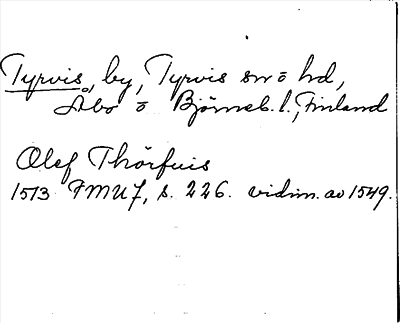 Tyrvis, by, Tyrvis sn o hd,
Åbo o Björneb. l., Finland
Olef Thörfuis
1513 FMU 7, s. 226. vidim. av 1549.